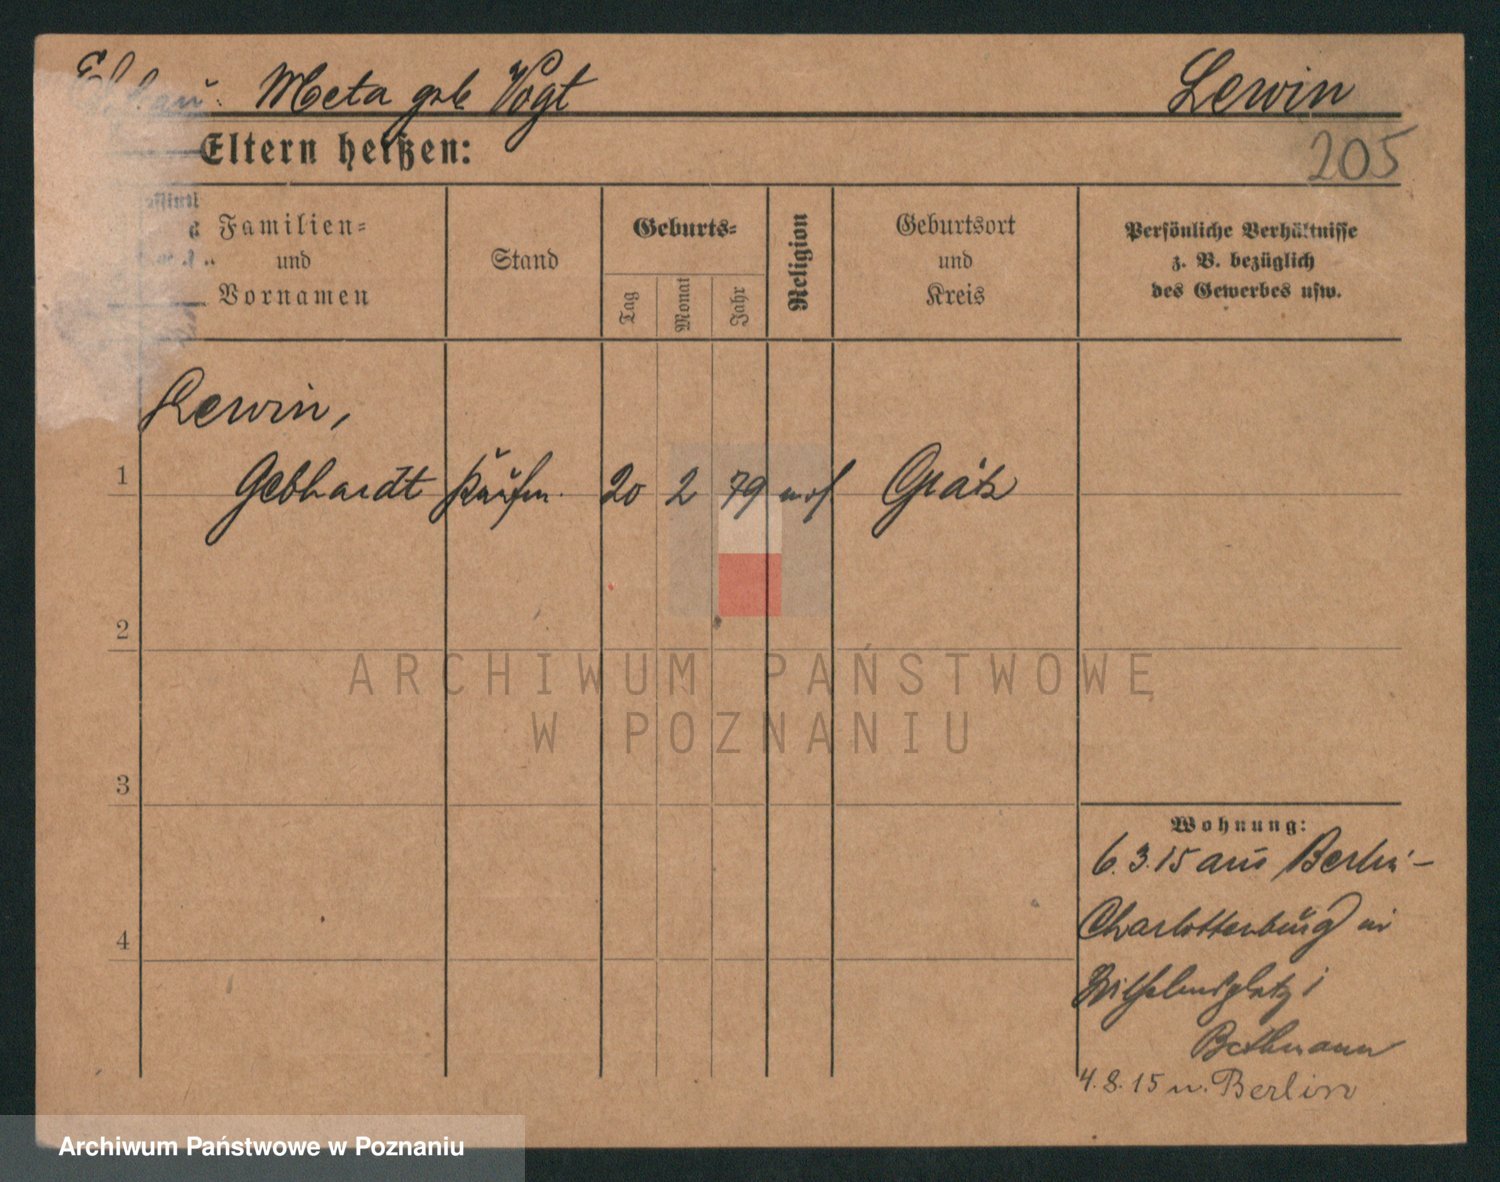 Ehefrau: Meta geb Vogt Lewin
205
Eltern heißen:
Familien=
und
Vornamen
Stand
Geburts=
Tag
Monat
Jahr
Religion
Geburtsort
und
Kreis
Persönliche Verhältnisse
z. B. bezüglich
des Gewerbes usw.
Lewin,
1 Gebhardt Kaufm. 20 2 79 mos Grätz
2
3
4
Wohnung:
6.3.15 aus Berlin-
Charlottenburg in
Wilhelmsplatz 1
Bethmann
4.8.15 n. Berlin
ARCHIWUM PAŃSTWOWE
W POZNANIU
Archiwum Państwowe w Poznaniu